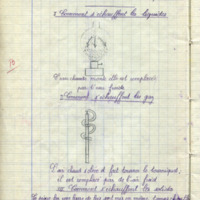 I Comment s'échauffent les liquides
10
L'eau chaude monte elle est remplacée
par l'eau froide
Comment s'échauffent les gaz
L'air chaud s'élève et fait tourner le
il est remplacé par de l'air froid
III Comment s'échauffent les solides